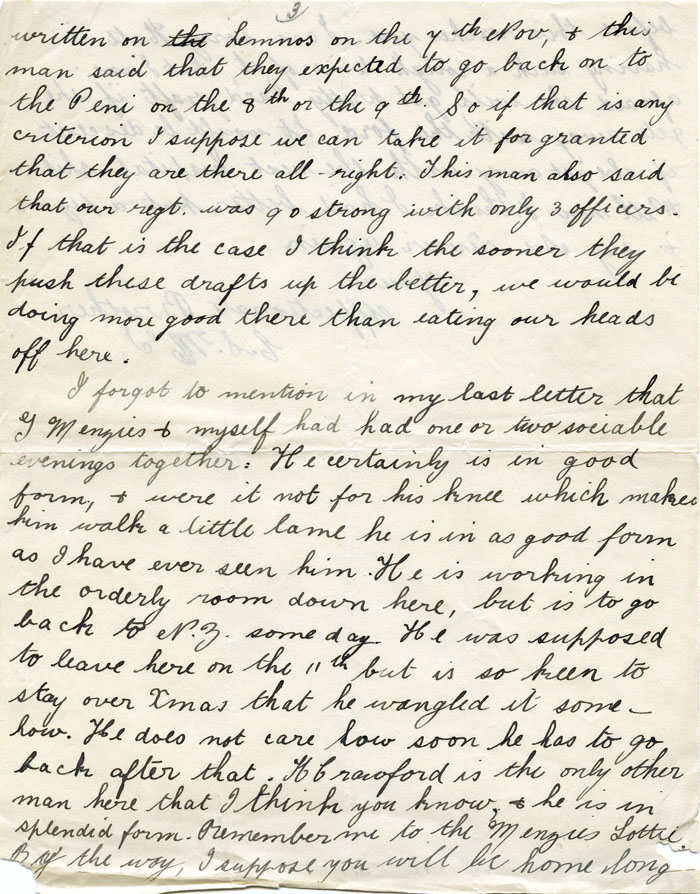 3
written on the Lemnos on the 7th Nov, & this
man said that they expected to go back on to
the Peni on the 8th or the 9th. So if that is any
criterion I suppose we can take it for granted
that they are there all-right. This man also said
that our regt. was 90 strong with only 3 officers.
If that is the case I think the sooner they
push these drafts up the better, we would be
doing more good there than eating our heads
off here.
I forgot to mention in my last letter that
G Menzies & myself had had one or two sociable
evenings together: He certainly is in good
form, & were it not for his knee which makes
him walk a little lame he is in as good form
as I have ever seen him. He is working in
the orderly room down here, but is to go
back to N.Z. some day. He was supposed
to leave here on the 11th but is so keen to
stay over Xmas that he wangled it some-
how. He does not care how soon he has to go
back after that. H Crawford is the only other
man here that I think you know, & he is in
splendid form. Remember me to the Menzies Lottie.
By the way, I suppose you will be home long